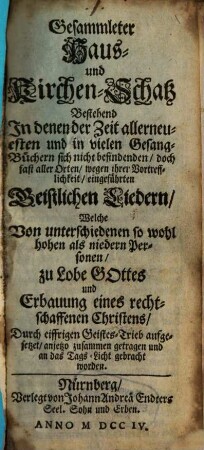 Gesammleter
Haus-
und
Kirchen-Schatz
Bestehend
In denen der Zeit allerneu-
esten und in vielen Gesang-
Büchern sich nicht befindenden/ doch
fast aller Orten/ wegen ihrer Vortreff-
lichkeit/ eingeführten
Geistlichen Liedern/
Welche
Von unterschiedenen so wohl
hohen als niedern Per-
sonen/
zu Lobe GOttes
und
Erbauung eines recht-
schaffenen Christens/
Durch eiffrigen Geistes-Trieb aufge-
setzet/ anjetzo zusammen getragen und
an das Tags-Licht gebracht
worden.
Nürnberg/
Verlegt von Johann Andreä Enders
Seel. Sohn und Erben.
ANNO M DCC IV.